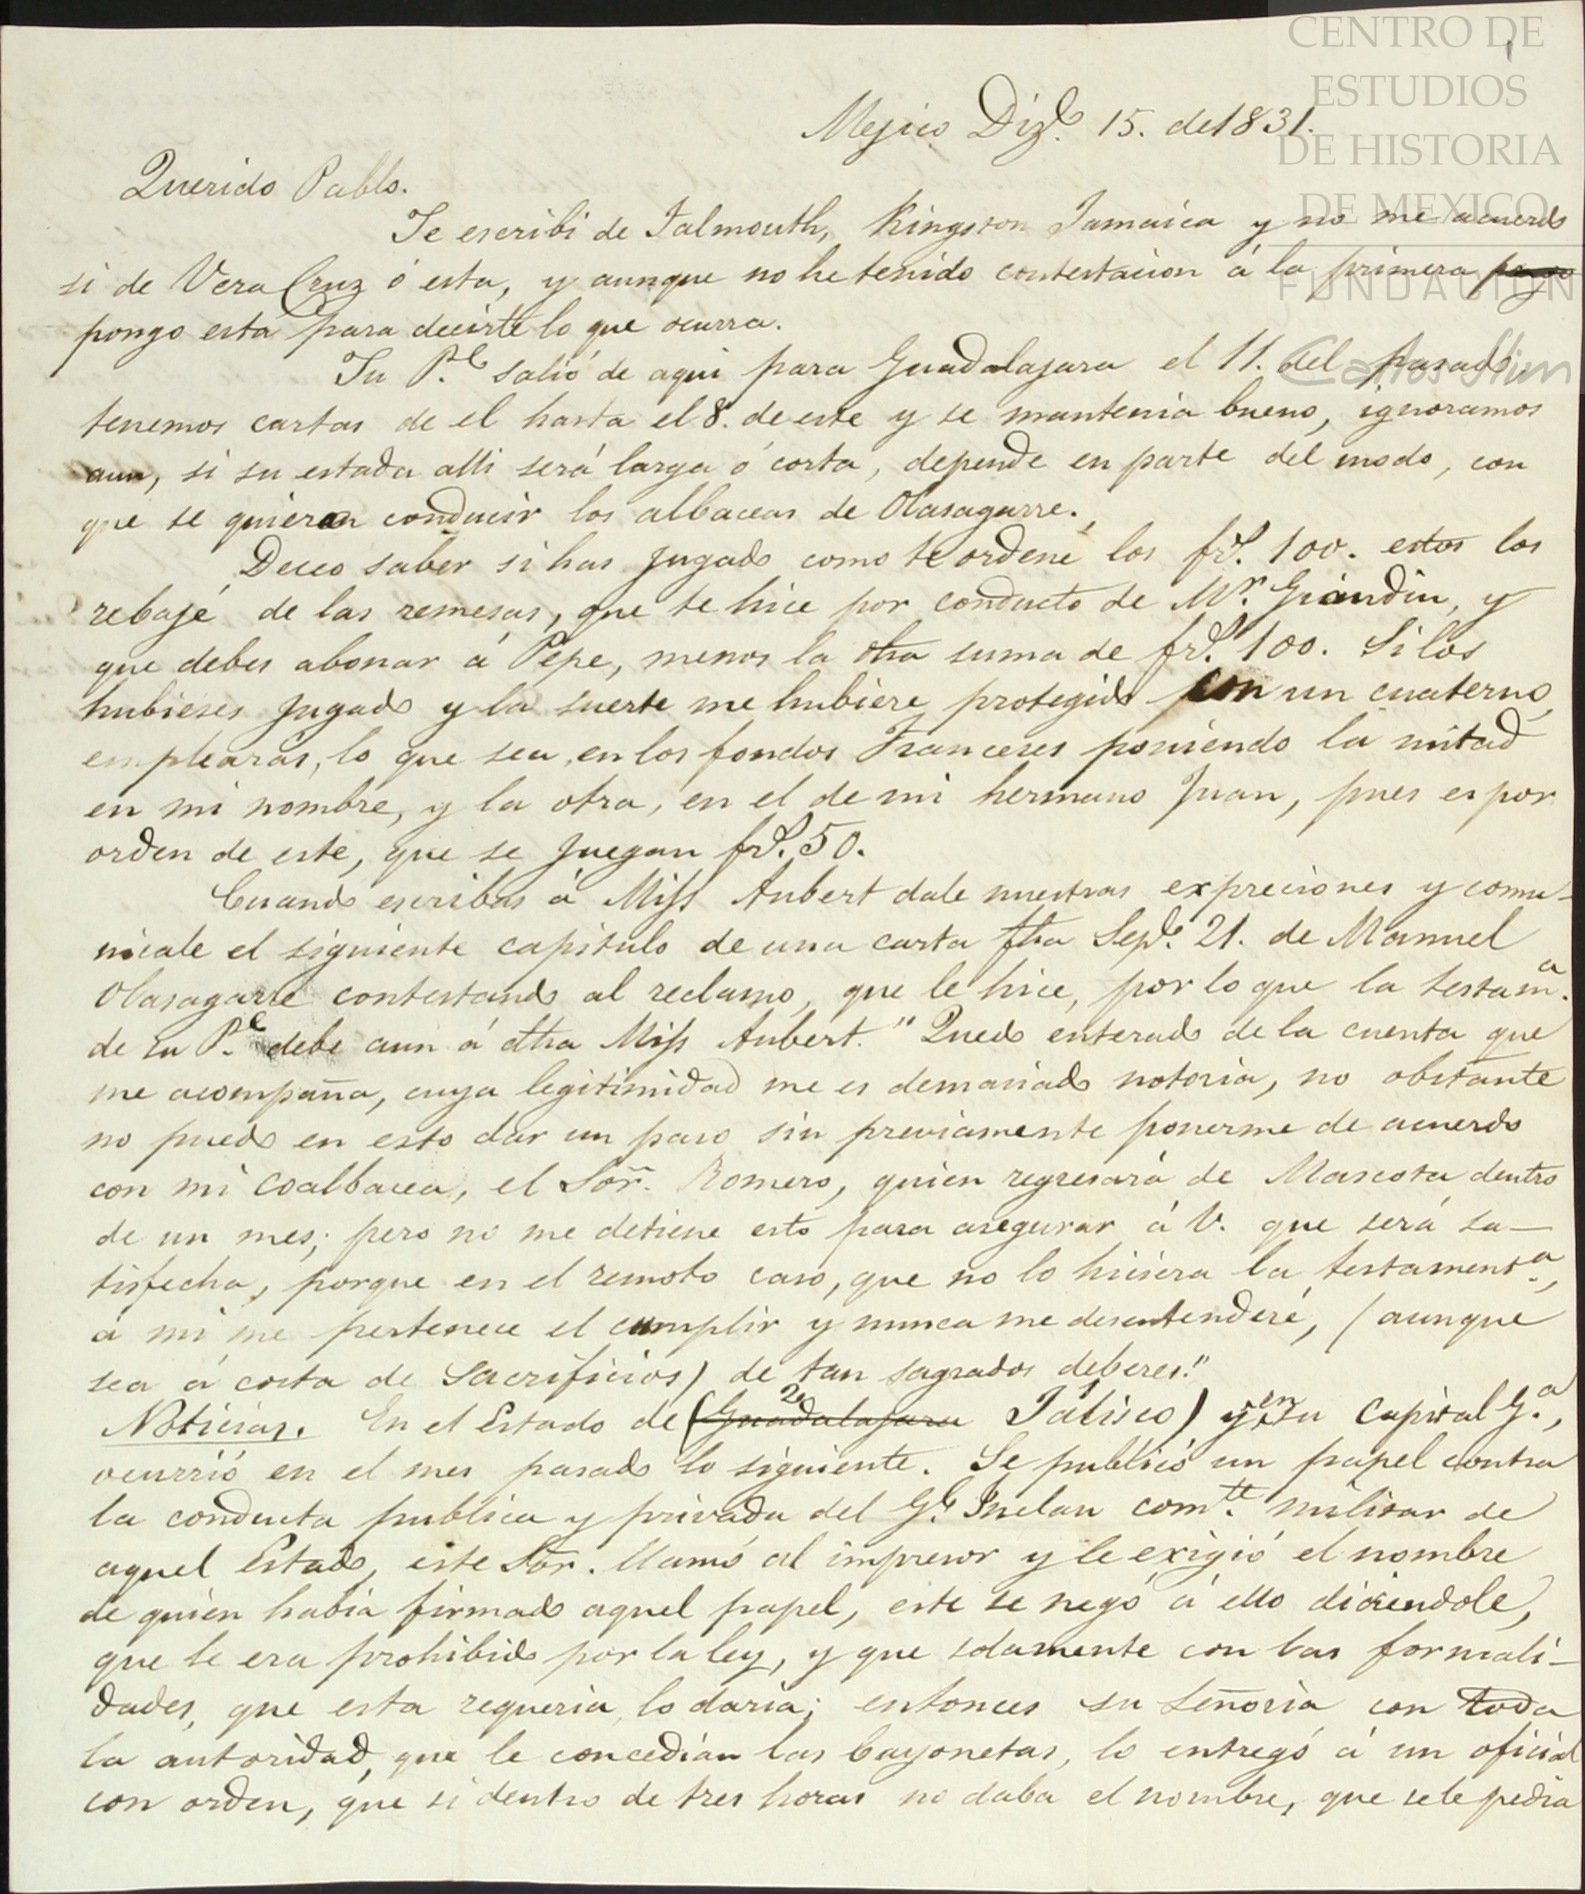 CENTRO DE
ESTUDIOS
DE HISTORIA
DE MEXICO
FUNDACION
Carlos Slim
Mejico Dizᵉ. 15. de 1831.
Querido Pablo.
Te escribi de Falmouth, Kingston Jamaica y no me acuerdo
si de Vera Cruz ó esta, y aunque no he tenido contestacion á la primera
pongo esta para decirte lo que ocurra.
Tu P.ᵉ salió de aqui para Guadalajara el 11. del pasado,
tenemos cartas de el hasta el 8. de este y se mantenia bueno, ignoramos
aun, si su estada alli será larga ó corta, depende en parte del modo, con
que se quieran conducir los albaceas de Olasagarre.
Deceo saber si has jugado como te ordené los frˢ. 100. estos los
rebajé de las remesas, que te hice por conducto de Mʳ. Grandin, y
que debes abonar á Pepe, menos la otra suma de frˢ. 100. Si los
hubieses jugado y la suerte me hubiere protegido con un cuaterno,
emplearás, lo que sea, en los fondos Franceses poniendo la mitad
en mi nombre, y la otra, en el de mi hermano Juan, pues es por
orden de este, que se juegan frˢ. 50.
Cuando escribas á Miss Aubert dale nuestras expreciones y comu-
nicale el siguiente capitulo de una carta fha Sepᵉ. 21. de Manuel
Olasagarre contestando al reclamo, que le hice, por lo que la testamᵃ.
de su P.ᵉ debe aun á dha Miss Aubert. "Quedo enterado de la cuenta que
me acompaña, cuya legitimidad me es demasiado notoria, no obstante
no puedo en esto dar un paso sin previamente ponerme de acuerdo
con mi coalbacea, el Sōr. Romero, quien regresará de Mascota dentro
de un mes; pero no me detiene esto para asegurar á V. que será sa-
tisfecha, porque en el remoto caso, que no lo hiciera la testamentᵃ.,
á mi me pertenece el cumplir y nunca me desentenderé, (aunque
sea á costa de sacrificios) de tan sagrados deberes."
Noticias. En el Estado de (Guadalajara 2 Jalisco) y en su Capital G.ᵃ,
ocurrió en el mes pasado lo siguiente. Se publicó un papel contra
la conducta publica y privada del Gˡ. Inclan comᵗᵉ. militar de
aquel Estado, este Sōr. llamó al impresor y le exigió el nombre
de quien habia firmado aquel papel, este se negó á ello diciendole,
que le era prohibido por la ley, y que solamente con las formali-
dades, que esta requeria, lo daria; entonces su señoria con toda
la autoridad, que le concedian las bayonetas, lo entregó á un oficial
con orden, que si dentro de tres horas no daba el nombre, que se le pedia